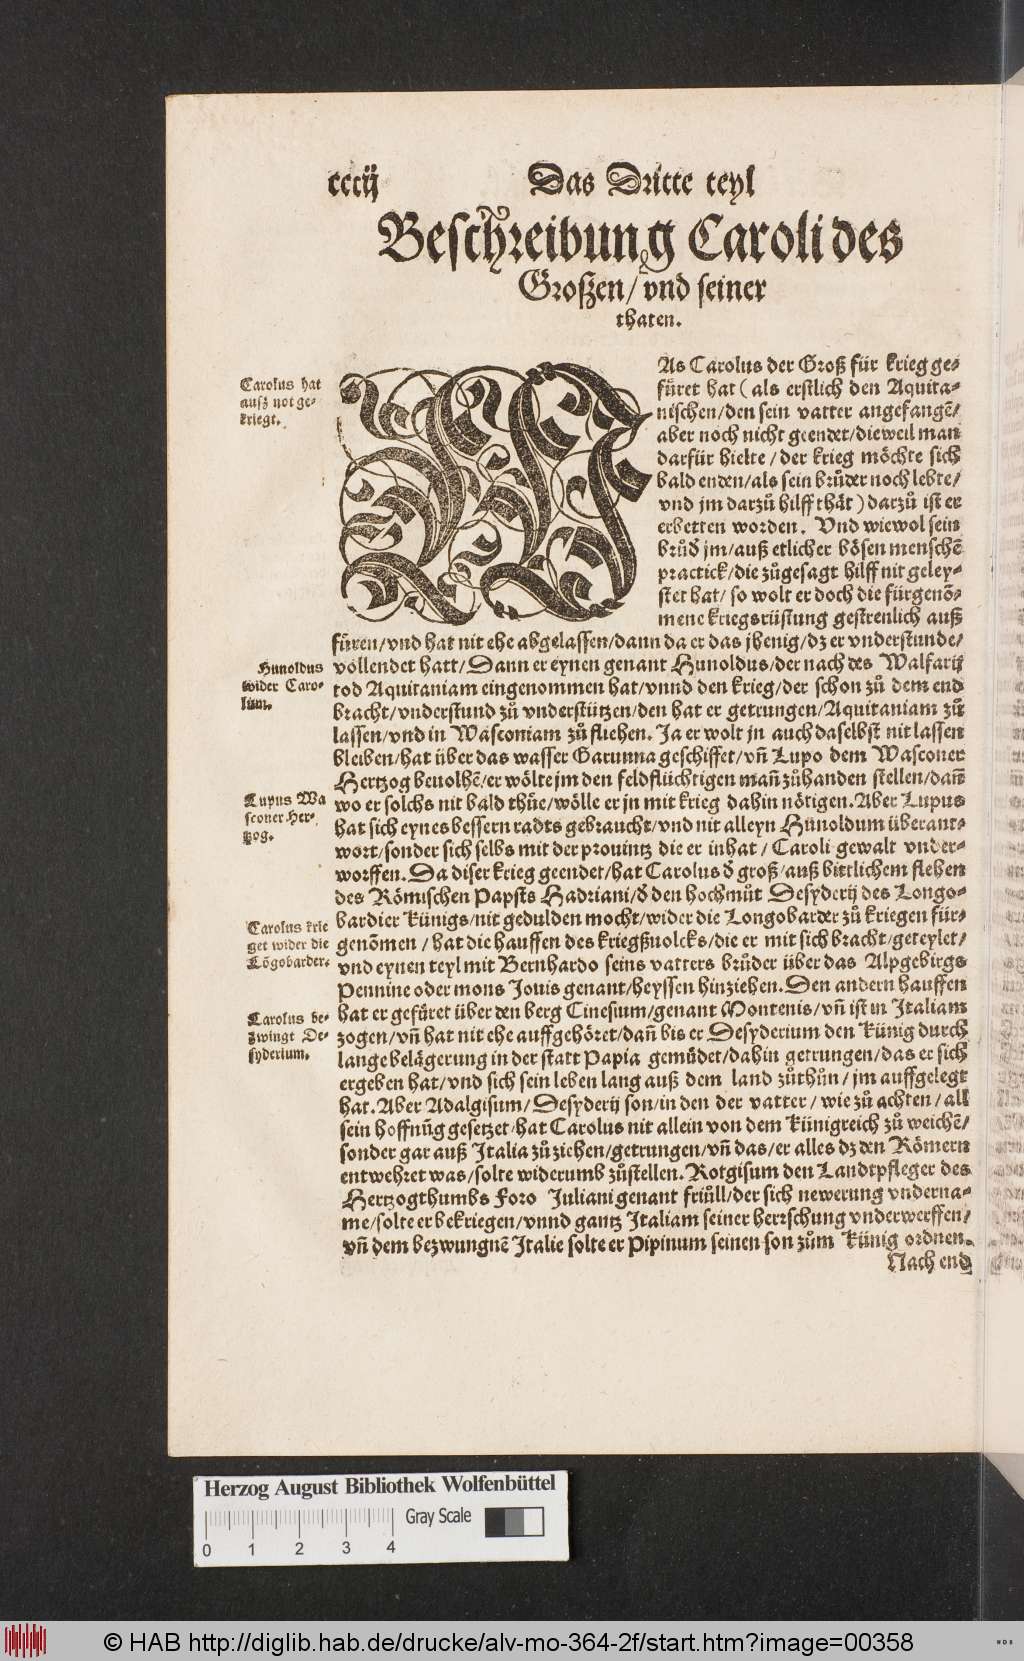 cccij
Das Dritte teyl
Beschreibung Caroli des
Großen/ vnd seiner
thaten.
Carolus hat
außz not ge-
kriegt.
WAs Carolus der Groß für krieg ge-
füret hat (als erstlich den Aquita-
nischen/den sein vatter angefangẽ/
aber noch nicht geendet/dieweil man
darfür hielte/der krieg möchte sich
bald enden/als sein brůder noch lebte/
vnd jm darzů hilff thät) darzů ist er
erbetten worden. Vnd wiewol sein
brůd̕ jm/auß etlicher bösen menschẽ
practick/die zůgesagt hilff nit geley-
stet hat/ so wolt er doch die fürgenõ-
mene kriegsrüstung gestrenlich auß
füren/vnd hat nit ehe abgelassen/dann da er das jhenig/dz er vnderstunde/
völlendet hatt/Dann er eynen genant Hunoldus/der nach des Walfarij
tod Aquitaniam eingenommen hat/vnnd den krieg/der schon zů dem end
bracht/vnderstund zů vnderstützen/den hat er getrungen/Aquitaniam zů
lassen/vnd in Wasconiam zů fliehen. Ja er wolt jn auch daselbst nit lassen
bleiben/hat über das wasser Garunna geschiffet/vñ Lupo dem Wasconer
Hertzog beuolhẽ/er wölte jm den feldflüchtigen mañ zůhanden stellen/dañ
wo er solchs nit bald thüe/wölle er jn mit krieg dahin nötigen. Aber Lupus
hat sich eynes bessern radts gebraucht/vnd nit alleyn Hunoldum überant-
wort/sonder sich selbs mit der prouintz die er inhat/ Caroli gewalt vnder-
worffen. Da diser krieg geendet/hat Carolus d̕ groß/auß bittlichem flehen
des Römischen Papsts Hadriani/d̕ den hochmůt Desyderij des Longo-
bardier Künigs/nit gedulden mocht/wider die Longobarder zů kriegen für-
genõmen/ hat die hauffen des kriegßuolcks/die er mit sich bracht/geteylet/
vnd eynen teyl mit Bernhardo seins vatters brůder über das Alpgebirgs
Pennine oder mons Jouis genant/heyssen hinziehen. Den andern hauffen
hat er gefüret über den berg Cinesium/genant Montenis/vñ ist in Italiam
zogen/vñ hat nit ehe auffgehöret/dañ bis er Desyderium den Künig durch
lange belägerung in der statt Papia gemůdet/dahin getrungen/das er sich
ergeben hat/vnd sich sein leben lang auß dem land zůthůn/jm auffgelegt
hat. Aber Adalgisum/Desyderij son/in den der vatter/wie zů achten/all
sein hoffnũg gesetzet/hat Carolus nit allein von dem Künigreich zů weichẽ/
sonder gar auß Italia zů ziehen/getrungen/vñ das/er alles dz den Römern
entwehret was/solte widerumb zůstellen. Rotgisum den Landtpfleger des
Hertzogthumbs Foro Juliani genant friůll/der sich newerung vnderna-
me/solte er bekriegen/vnnd gantz Italiam seiner herrschung vnderwerffen/
vñ dem bezwungnẽ Italie solte er Pipinum seinen son zům Künig ordnen.
Nach end
Hunoldus
wider Caro-
lum.
Lupus Wa
sconer Her-
tzog.
Carolus krie
get wider die
Lõgobarder.
Carolus be-
zwingt De-
syderium.
Herzog August Bibliothek Wolfenbüttel
Gray Scale
0 1 2 3 4
© HAB http://diglib.hab.de/drucke/alv-mo-364-2f/start.htm?image=00358